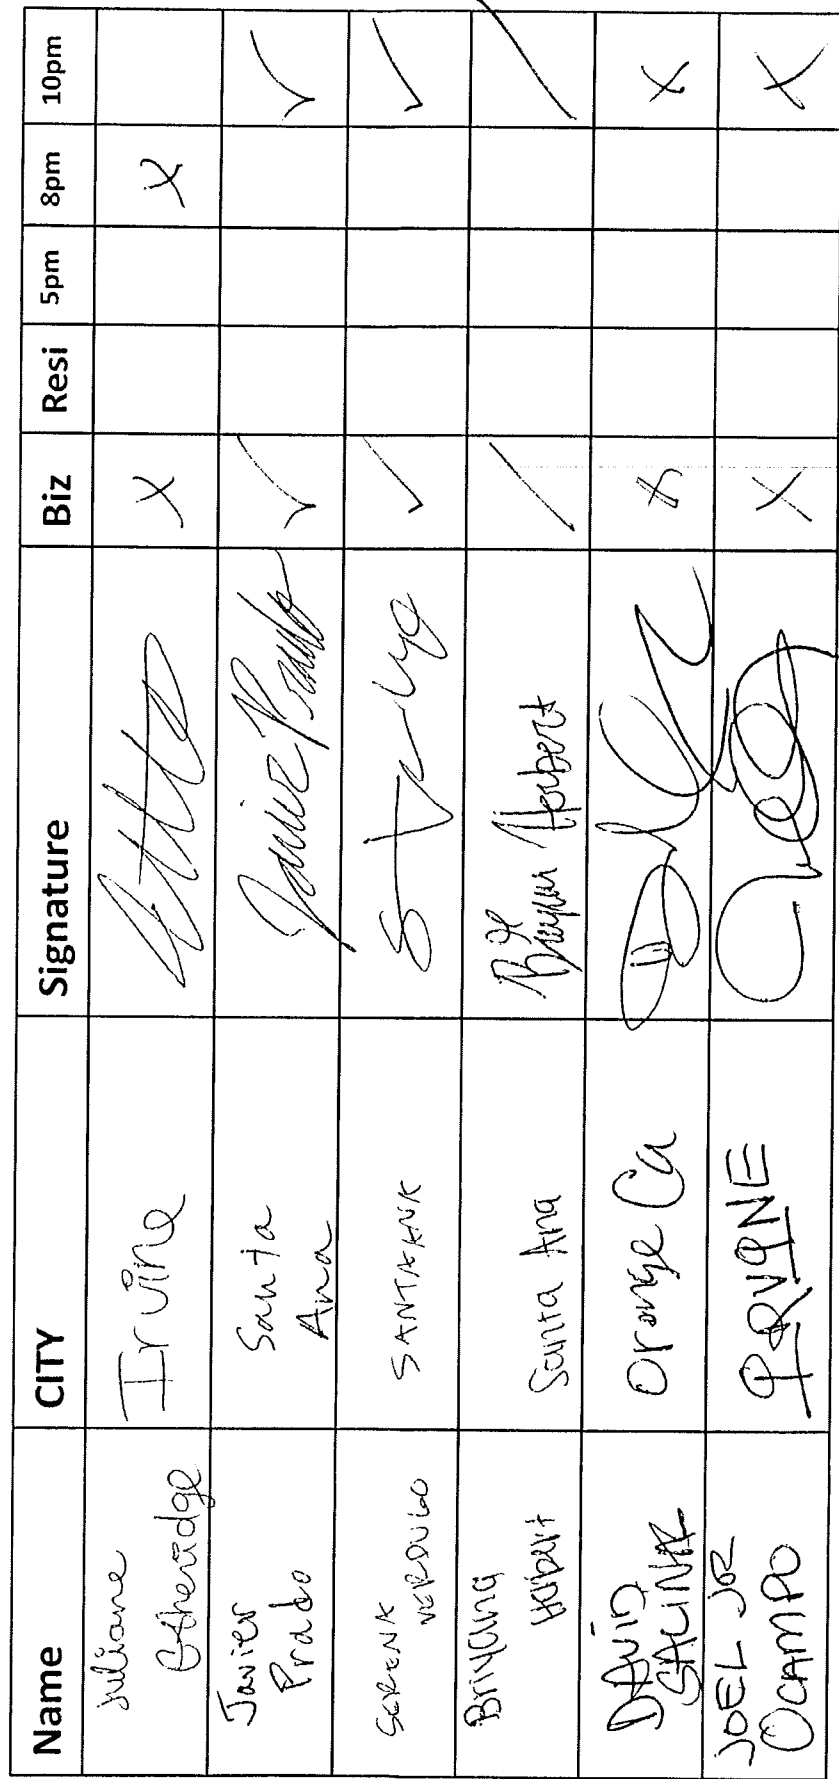 Name CITY Signature Biz Resi 5pm 8pm 10pm
Juliane Etheridge Irvine X X
Javier Prado Santa Ana Javier Prado ✓ ✓
SERENA VERDUGO SANTA ANA ✓ ✓
Briyana Herbert Santa Ana Herbert / /
DAVID SALINA Orange Ca X X
JOEL JR OCAMPO IRVINE X X